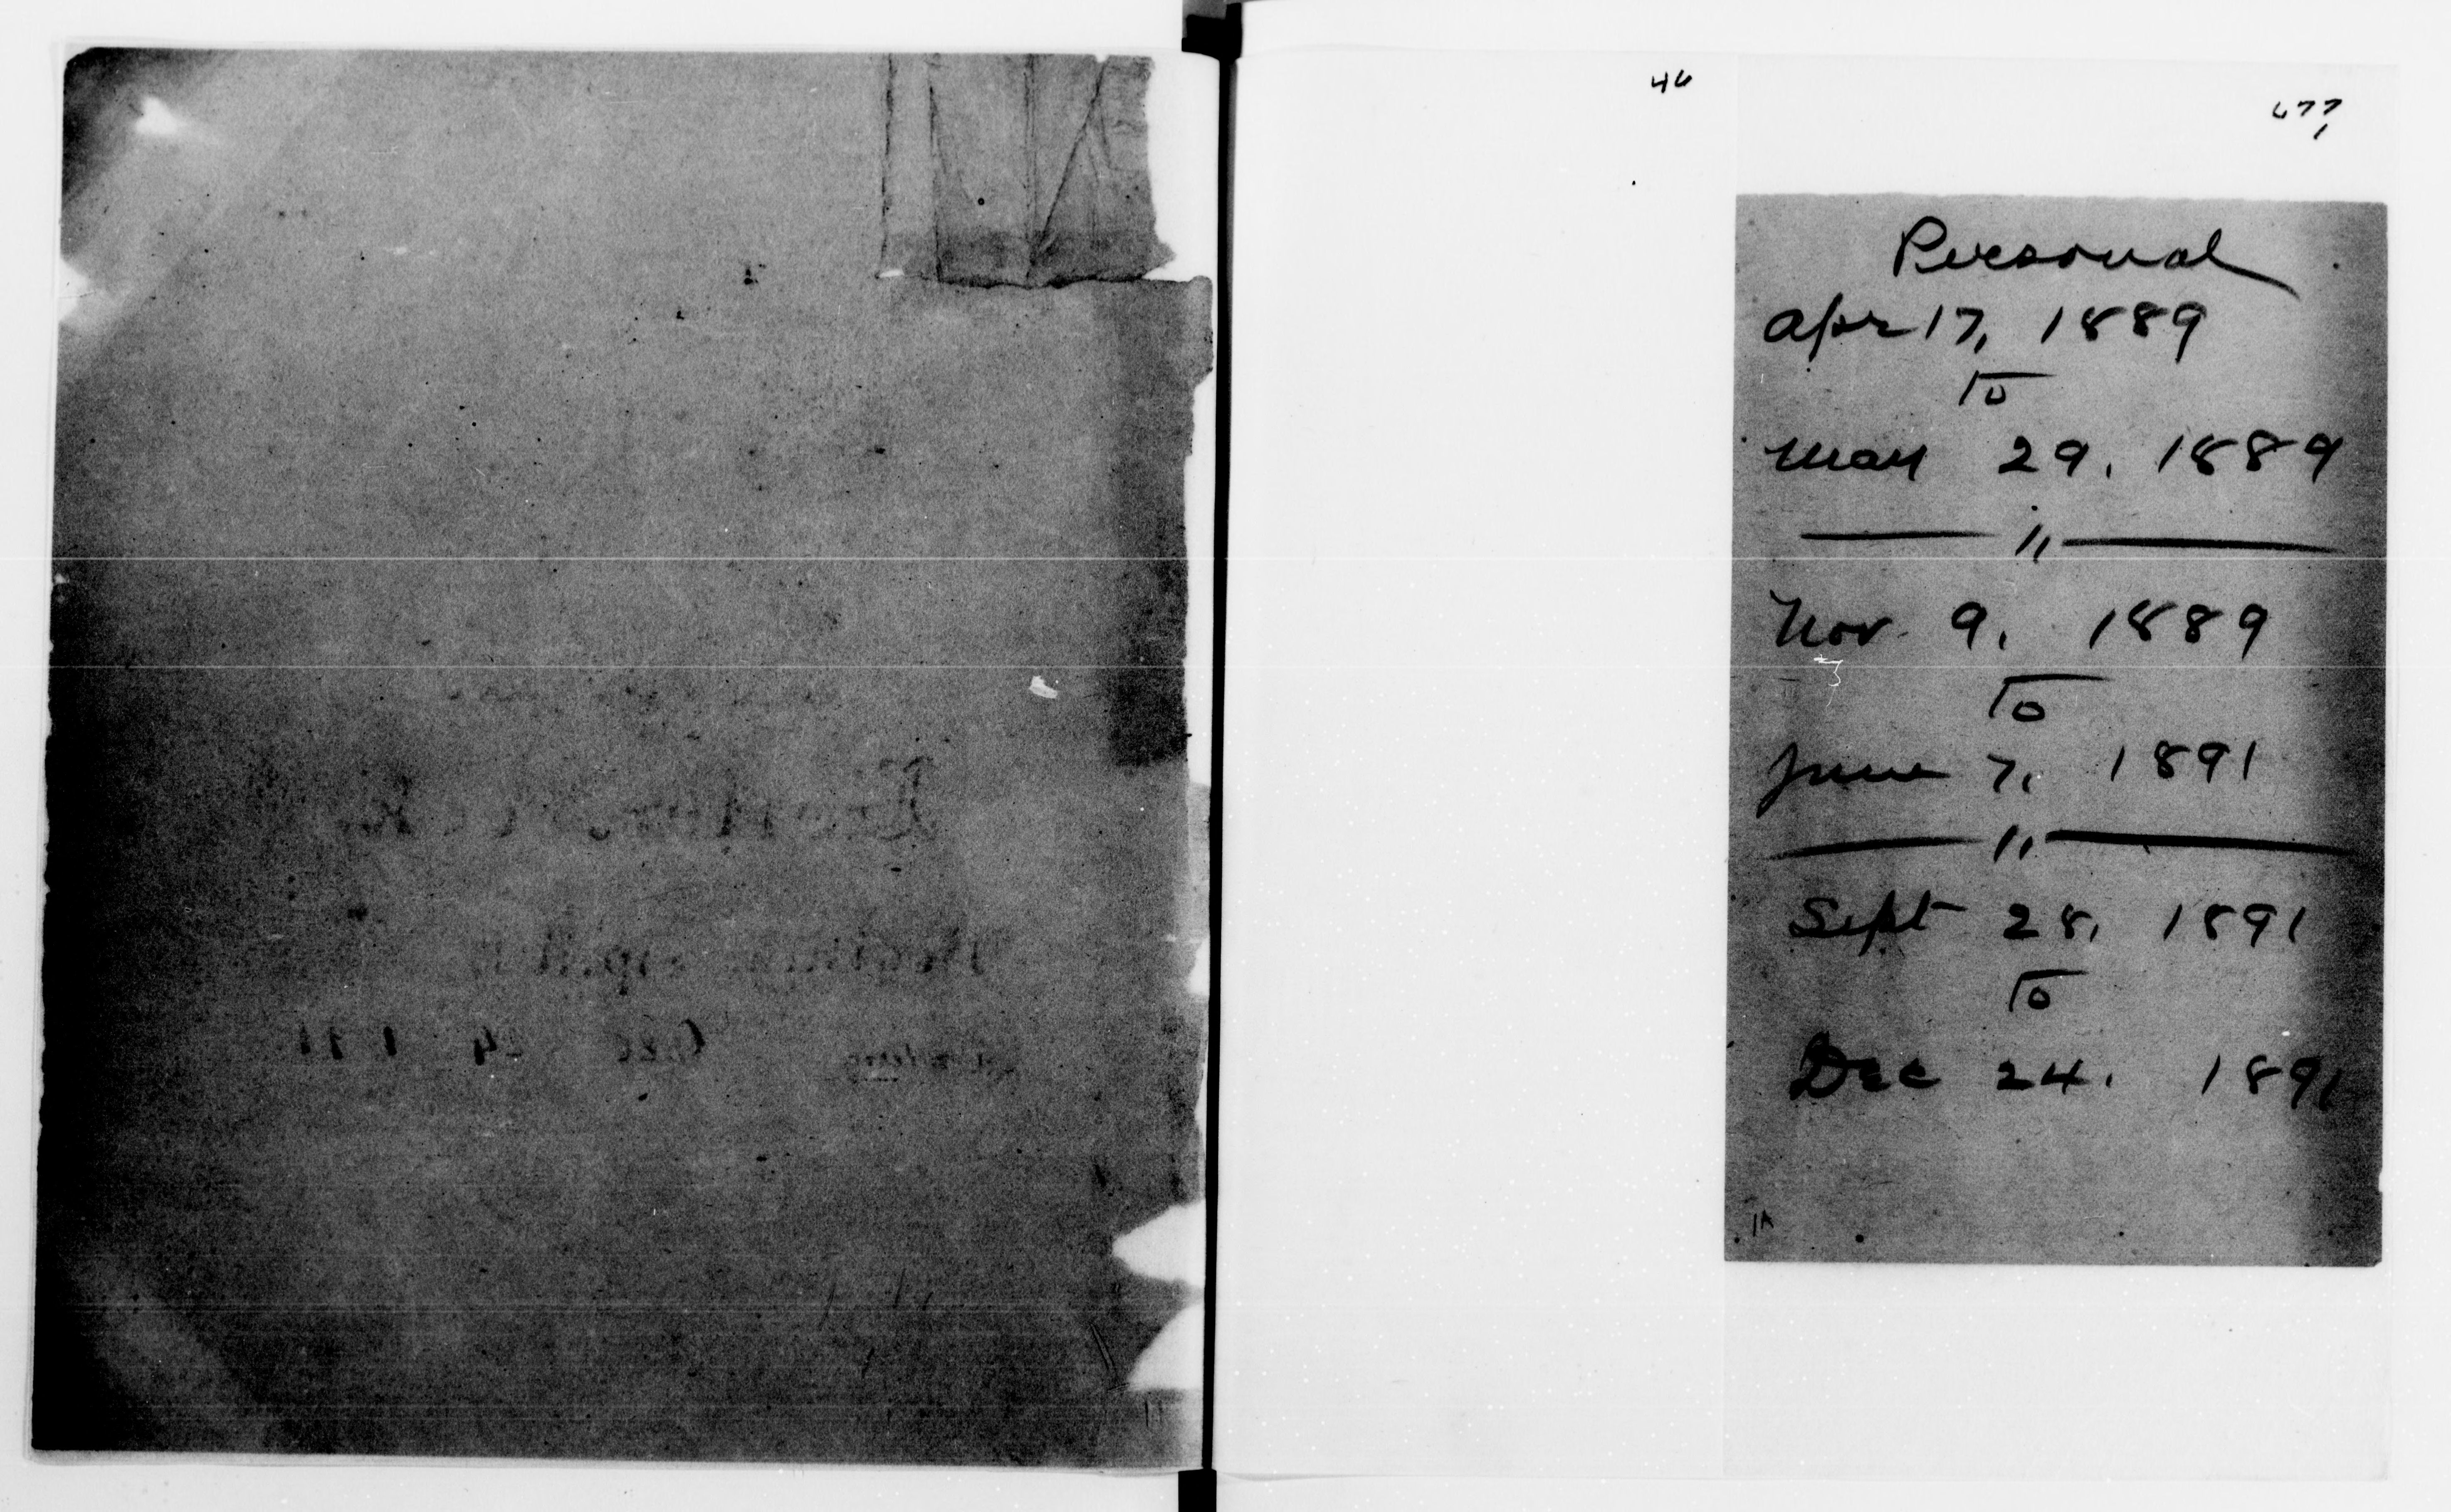 46
677
Personal
Apr 17, 1889
to
May 29, 1889
— " —
Nov. 9, 1889
to
June 7, 1891
— " —
Sept 28, 1891
to
Dec 24, 1891